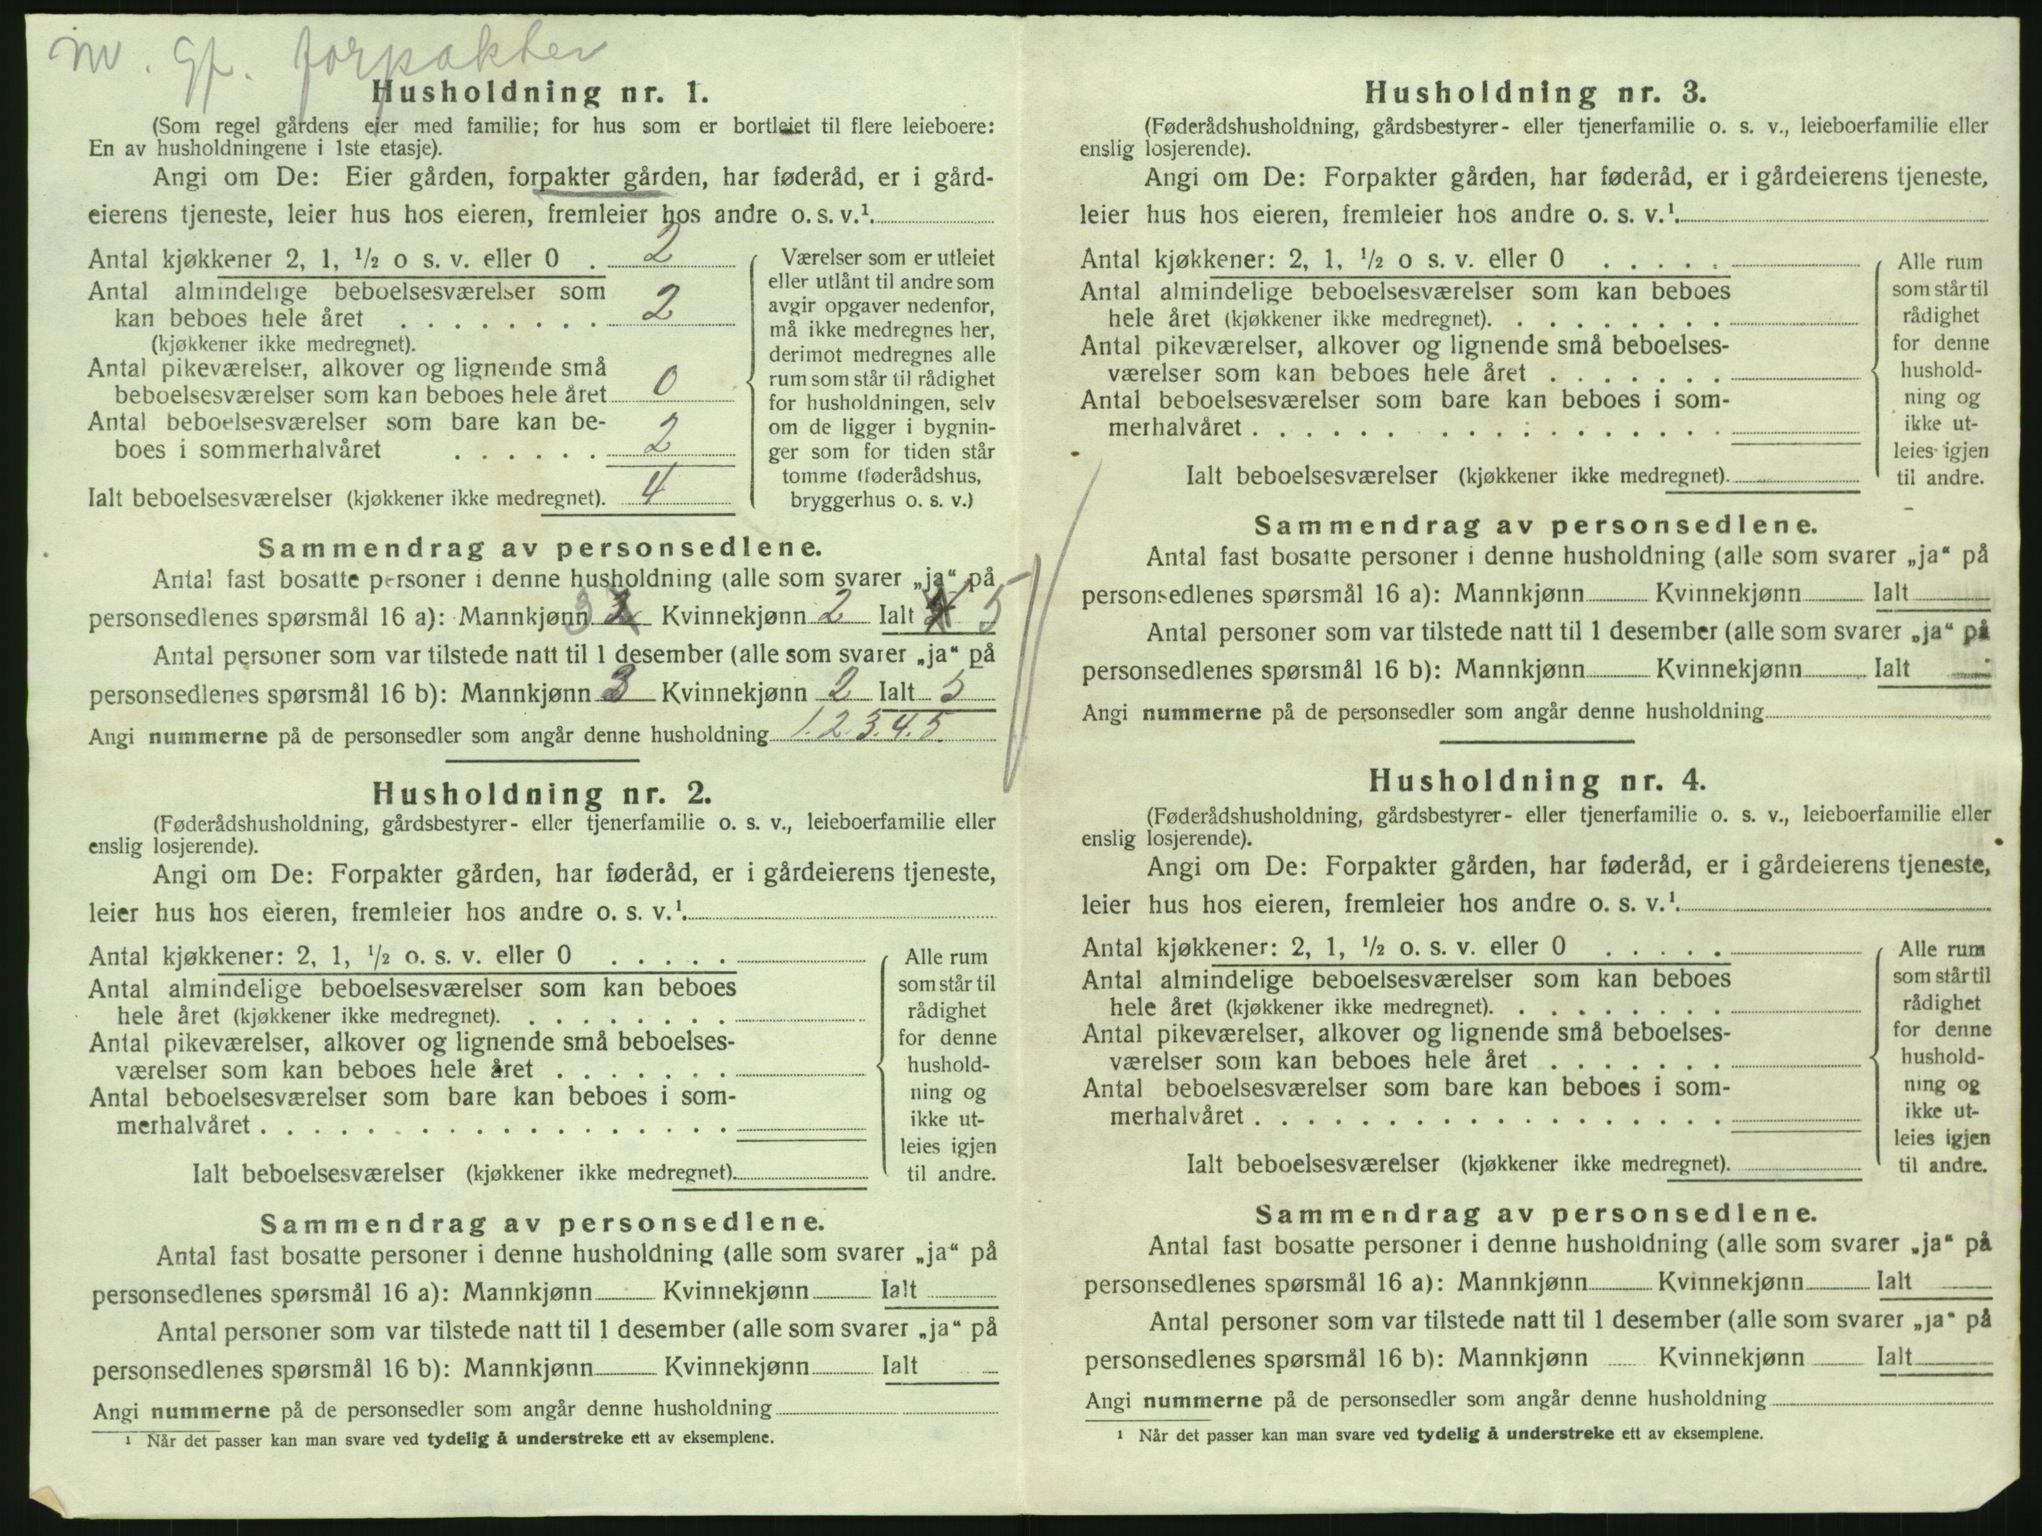 m. gf. forpakter
Husholdning nr. 1.
(Som regel gårdens eier med familie; for hus som er bortleiet til flere leieboere:
En av husholdningene i 1ste etasje).
Angi om De: Eier gården, forpakter gården, har føderåd, er i gård-
eierens tjeneste, leier hus hos eieren, fremleier hos andre o. s. v.¹
Antal kjøkkener 2, 1, ½ o s. v. eller 0 . 2
Antal almindelige beboelsesværelser som
kan beboes hele året . . . . . . . . 2
(kjøkkener ikke medregnet).
Antal pikeværelser, alkover og lignende små
beboelsesværelser som kan beboes hele året 0
Antal beboelsesværelser som bare kan be-
boes i sommerhalvåret . . . . . . 2
Ialt beboelsesværelser (kjøkkener ikke medregnet). 4
Værelser som er utleiet
eller utlånt til andre som
avgir opgaver nedenfor,
må ikke medregnes her,
derimot medregnes alle
rum som står til rådighet
for husholdningen, selv
om de ligger i bygnin-
ger som for tiden står
tomme (føderådshus,
bryggerhus o. s. v.)
Sammendrag av personsedlene.
Antal fast bosatte personer i denne husholdning (alle som svarer „ja“ på
personsedlenes spørsmål 16 a): Mannkjønn 3 2 Kvinnekjønn 2 Ialt 4 5
Antal personer som var tilstede natt til 1 desember (alle som svarer „ja“ på
personsedlenes spørsmål 16 b): Mannkjønn 3 Kvinnekjønn 2 Ialt 5
Angi nummerne på de personsedler som angår denne husholdning 1.2.3.4.5.
Husholdning nr. 2.
(Føderådshusholdning, gårdsbestyrer- eller tjenerfamilie o. s. v., leieboerfamilie eller
enslig losjerende).
Angi om De: Forpakter gården, har føderåd, er i gårdeierens tjeneste,
leier hus hos eieren, fremleier hos andre o. s. v.¹.
Antal kjøkkener: 2, 1, ½ o. s. v. eller 0 . . . . .
Antal almindelige beboelsesværelser som kan beboes
hele året (kjøkkener ikke medregnet). . . . . . . . .
Antal pikeværelser, alkover og lignende små beboelses-
værelser som kan beboes hele året . . . . . . .
Antal beboelsesværelser som bare kan beboes i som-
merhalvåret . . . . . . . . . . . . . . . . . .
Ialt beboelsesværelser (kjøkkener ikke medregnet).
Alle rum
som står til
rådighet
for denne
hushold-
ning og
ikke ut-
leies igjen
til andre.
Sammendrag av personsedlene.
Antal fast bosatte personer i denne husholdning (alle som svarer „ja“ på
personsedlenes spørsmål 16 a): Mannkjønn Kvinnekjønn Ialt
Antal personer som var tilstede natt til 1 desember (alle som svarer „ja“ på
personsedlenes spørsmål 16 b): Mannkjønn Kvinnekjønn Ialt
Angi nummerne på de personsedler som angår denne husholdning
¹ Når det passer kan man svare ved tydelig å understreke ett av eksemplene.
Husholdning nr. 3.
(Føderådshusholdning, gårdsbestyrer- eller tjenerfamilie o. s. v., leieboerfamilie eller
enslig losjerende).
Angi om De: Forpakter gården, har føderåd, er i gårdeierens tjeneste,
leier hus hos eieren, fremleier hos andre o. s. v.¹.
Antal kjøkkener: 2, 1, ½ o s. v. eller 0 . . . . .
Antal almindelige beboelsesværelser som kan beboes
hele året (kjøkkener ikke medregnet). . . . . . . . .
Antal pikeværelser, alkover og lignende små beboelses-
værelser som kan beboes hele året . . . . . . .
Antal beboelsesværelser som bare kan beboes i som-
merhalvåret . . . . . . . . . . . . . . . . .
Ialt beboelsesværelser (kjøkkener ikke medregnet).
Alle rum
som står til
rådighet
for denne
hushold-
ning og
ikke ut-
leies igjen
til andre.
Sammendrag av personsedlene.
Antal fast bosatte personer i denne husholdning (alle som svarer „ja“ på
personsedlenes spørsmål 16 a): Mannkjønn Kvinnekjønn Ialt
Antal personer som var tilstede natt til 1 desember (alle som svarer „ja“ på
personsedlenes spørsmål 16 b): Mannkjønn Kvinnekjønn Ialt
Angi nummerne på de personsedler som angår denne husholdning
Husholdning nr. 4.
(Føderådshusholdning, gårdsbestyrer- eller tjenerfamilie o. s. v., leieboerfamilie eller
enslig losjerende).
Angi om De: Forpakter gården, har føderåd, er i gårdeierens tjeneste,
leier hus hos eieren, fremleier hos andre o. s. v.¹.
Antal kjøkkener: 2, 1, ½ o. s. v. eller 0 . . . . .
Antal almindelige beboelsesværelser som kan beboes
hele året (kjøkkener ikke medregnet). . . . . . . . .
Antal pikeværelser, alkover og lignende små beboelses-
værelser som kan beboes hele året . . . . . . .
Antal beboelsesværelser som bare kan beboes i som-
merhalvåret . . . . . . . . . . . . . . . . . .
Ialt beboelsesværelser (kjøkkener ikke medregnet).
Alle rum
som står til
rådighet
for denne
hushold-
ning og
ikke ut-
leies igjen
til andre.
Sammendrag av personsedlene.
Antal fast bosatte personer i denne husholdning (alle som svarer „ja“ på
personsedlenes spørsmål 16 a): Mannkjønn Kvinnekjønn Ialt
Antal personer som var tilstede natt til 1 desember (alle som svarer „ja“ på
personsedlenes spørsmål 16 b): Mannkjønn Kvinnekjønn Ialt
Angi nummerne på de personsedler som angår denne husholdning
¹ Når det passer kan man svare ved tydelig å understreke ett av eksemplene.